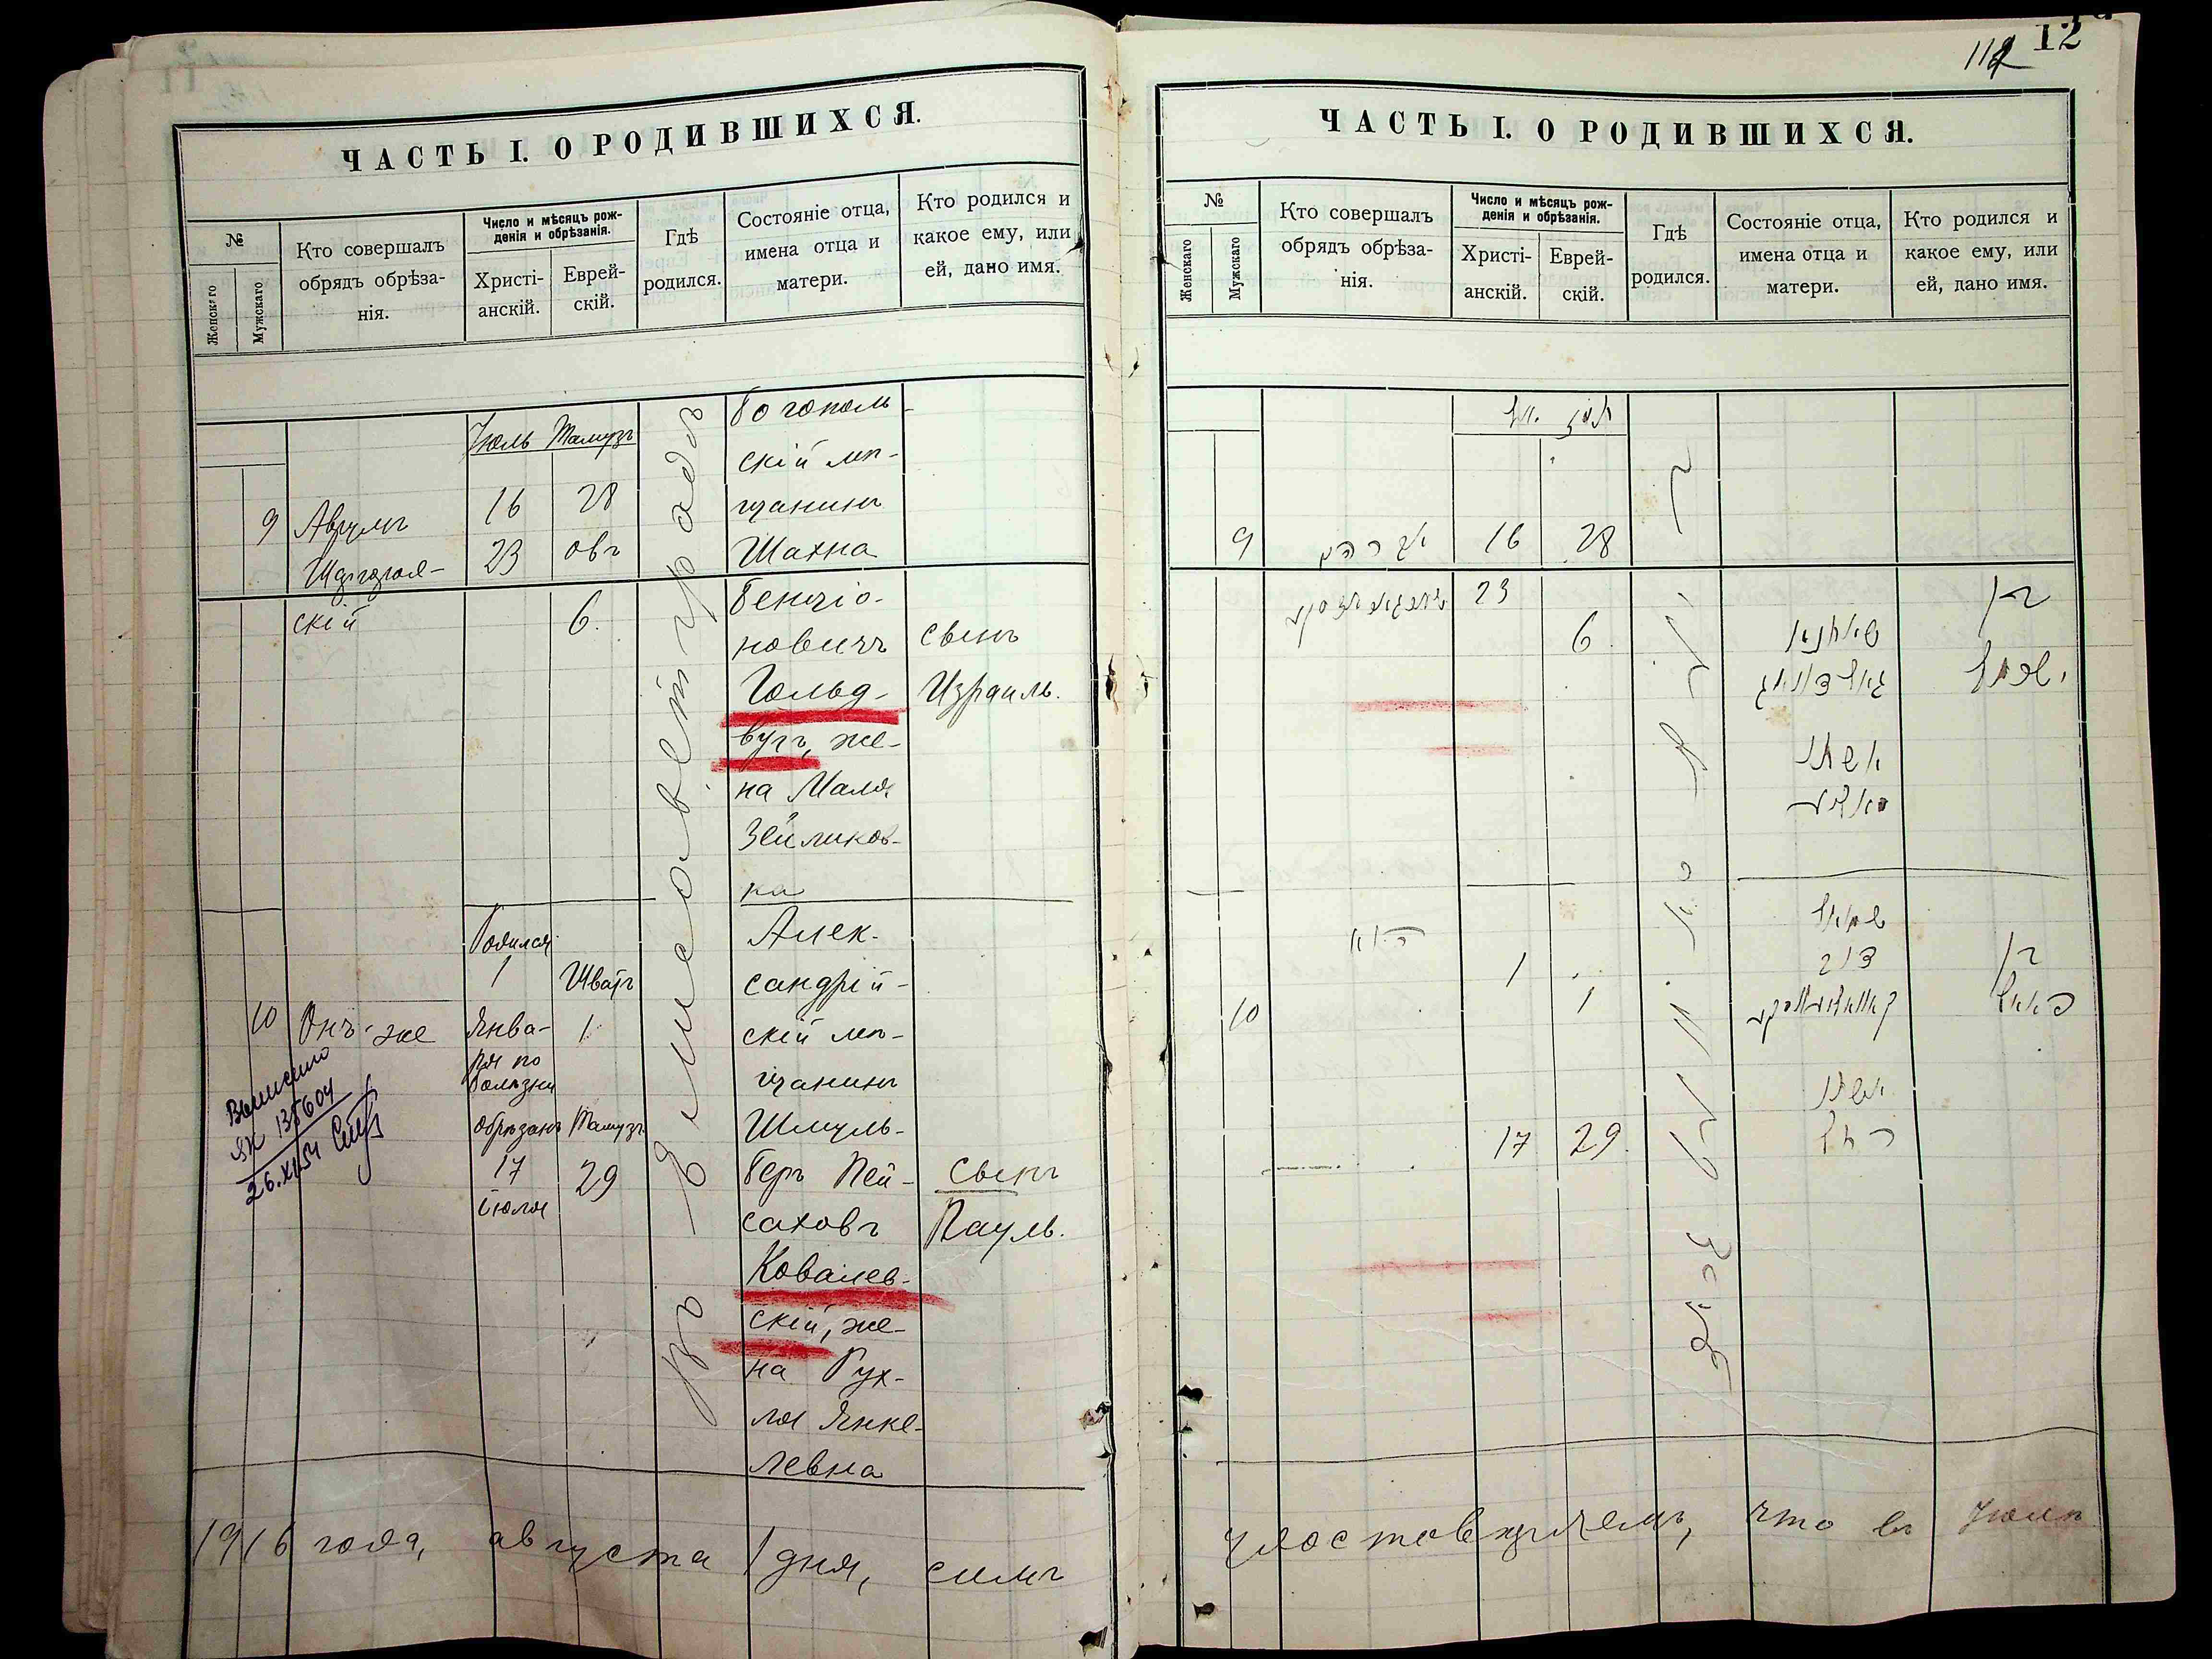 ЧАСТЬ I. О РОДИВШИХСЯ.
№
Женскаго
Мужскаго
Кто совершалъ
обрядъ обрѣза-
нія.
Число и мѣсяцъ рож-
денія и обрѣзанія.
Христі-
анскій.
Еврей-
скій.
Гдѣ
родился.
Состояніе отца,
имена отца и
матери.
Кто родился и
какое ему, или
ей, дано имя.
Іюль Тамузъ
9
Аврумъ
скій
16 28
23 овъ
6.
въ Елисаветградѣ
Богополь-
скій мѣ-
щанинъ
Шахна
Бенціо-
новичъ
Гольд-
бугъ, же-
на Маля
Зейликов-
на
сынъ
Израиль.
10
Онъ-же
Родился
1
Янва-
ря по
болѣзни
обрѣзанъ
17
іюля
Шватъ
1
Тамузъ
29
Алек-
сандрій-
скій мѣ-
щанинъ
Шмуль-
Беръ Пей-
саховъ
Ковалев-
скій, же-
на Рух-
ля Янке-
левна
Сынъ
Пауль.
1916 года, августа 1 дня, симъ
112 12
ЧАСТЬ I. О РОДИВШИХСЯ.
№
Женскаго
Мужскаго
Кто совершалъ
обрядъ обрѣза-
нія.
Число и мѣсяцъ рож-
денія и обрѣзанія.
Христі-
анскій.
Еврей-
скій.
Гдѣ
родился.
Состояніе отца,
имена отца и
матери.
Кто родился и
какое ему, или
ей, дано имя.
9
אברהם
16 28
23
6
שאחנא
אשתו
בן
ישראל
10
הוא
1 1
17 29
שמואל
דוב
אשתו
רחל
בן
פאול
удостовѣряемъ, что въ Іюлѣ